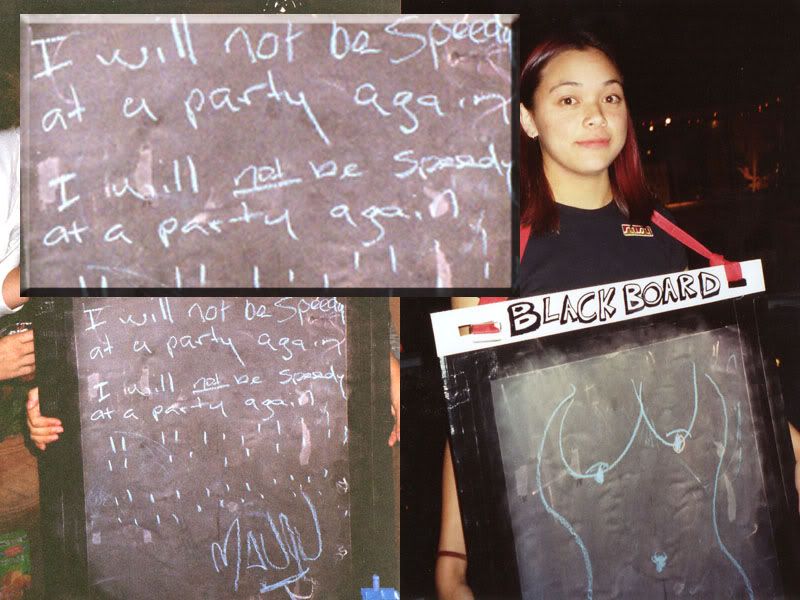 I will not be Speedy
at a party again
I will not be speedy
at a party again
I will not be Speedy
at a party again
I will not be speedy
at a party again
BLACK BOARD